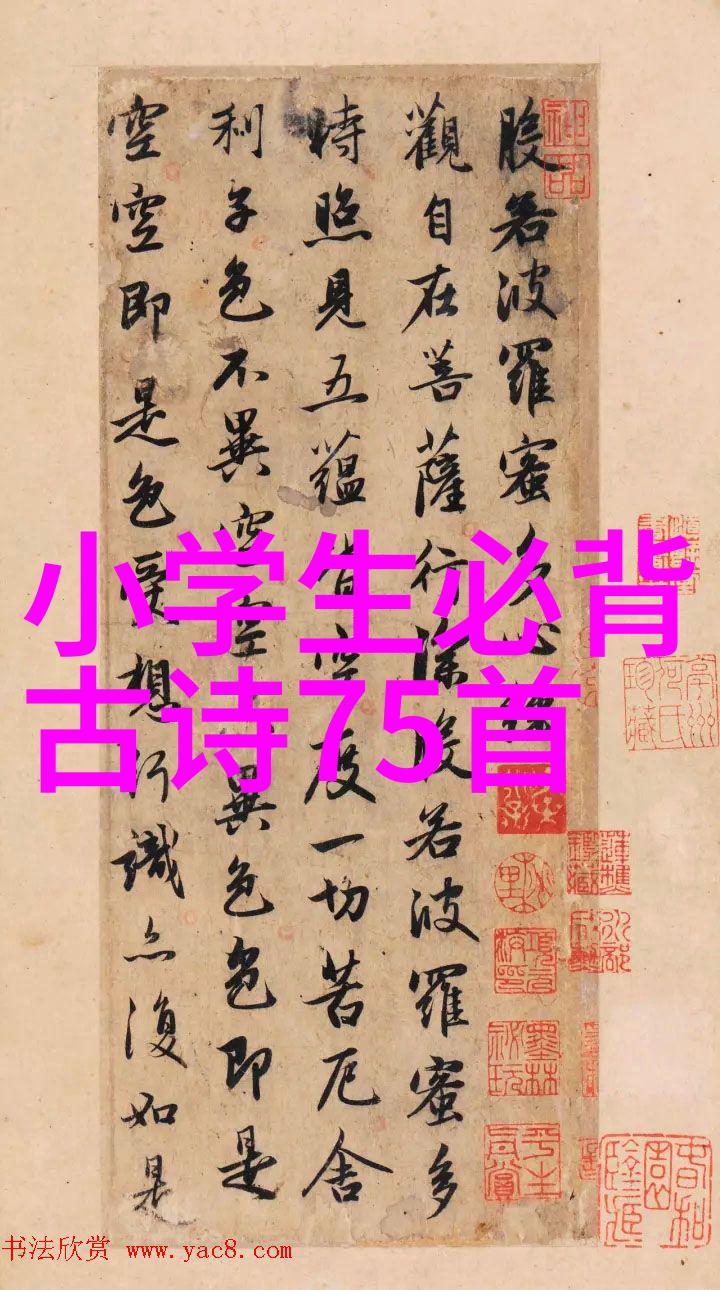 小学生必背
古诗75首
般若波羅蜜多心經
觀自在菩薩行深般若波羅蜜多
時照見五蘊皆空度一切苦厄舍
利子色不異空空不異色色即是
空空即是色受想行識亦復如是
神品
墨林秘玩
书法欣赏 www.yac8.com